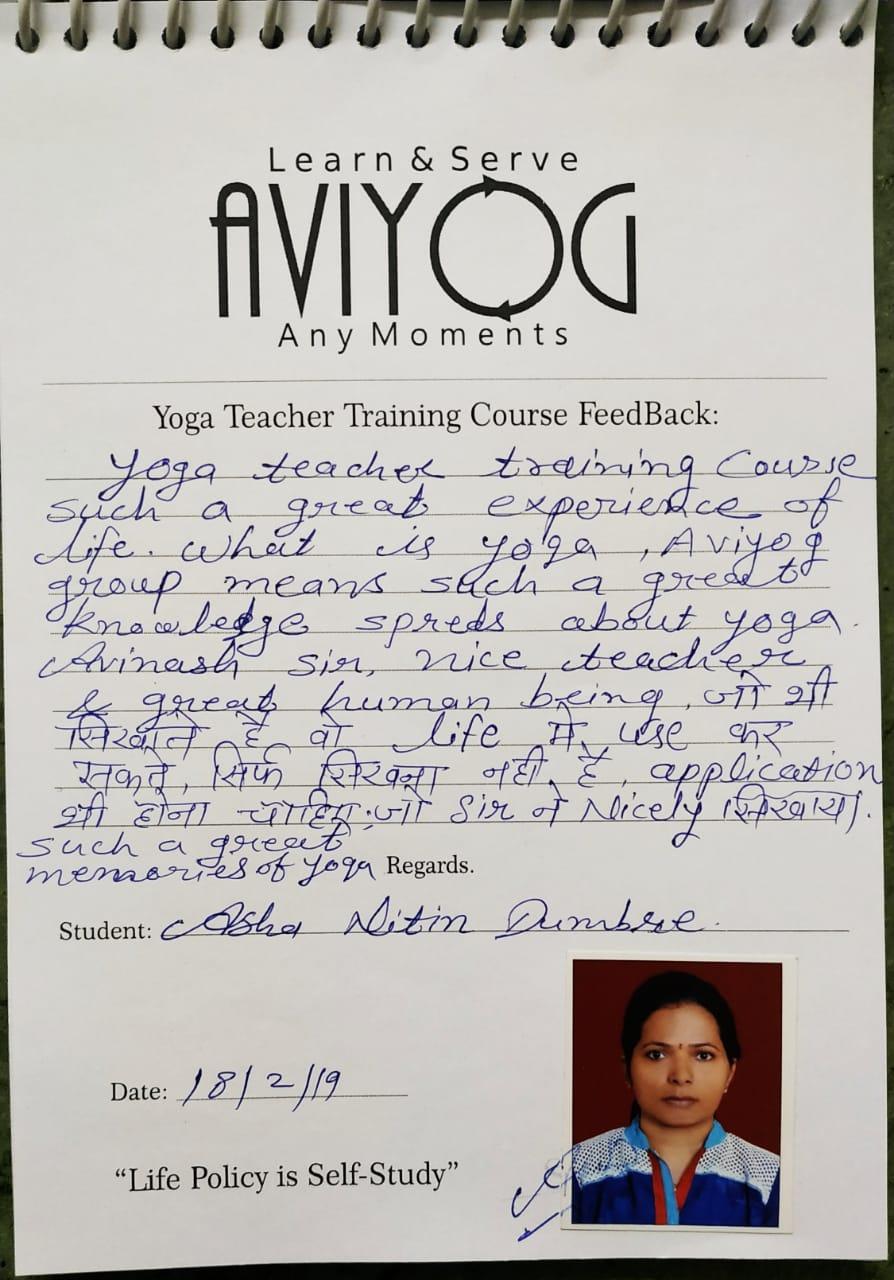 Learn & Serve
AVIYOG
Any Moments
Yoga Teacher Training Course FeedBack:
Yoga teacher training Course
such a great experience of
life. What is yoga , Aviyog
group means such a great
knowledge spreds about yoga.
Avinash sir, nice teacher
& great human being, जो भी
सिखाते है वो life मे, use कर
सकते, सिर्फ सिखना नही है, application
भी होना चाहिए, जो Sir ने Nicely सिखाया.
such a great
memories of yoga Regards.
Student: Asha Nitin Dumbre.
Date: 18/2/19
“Life Policy is Self-Study”